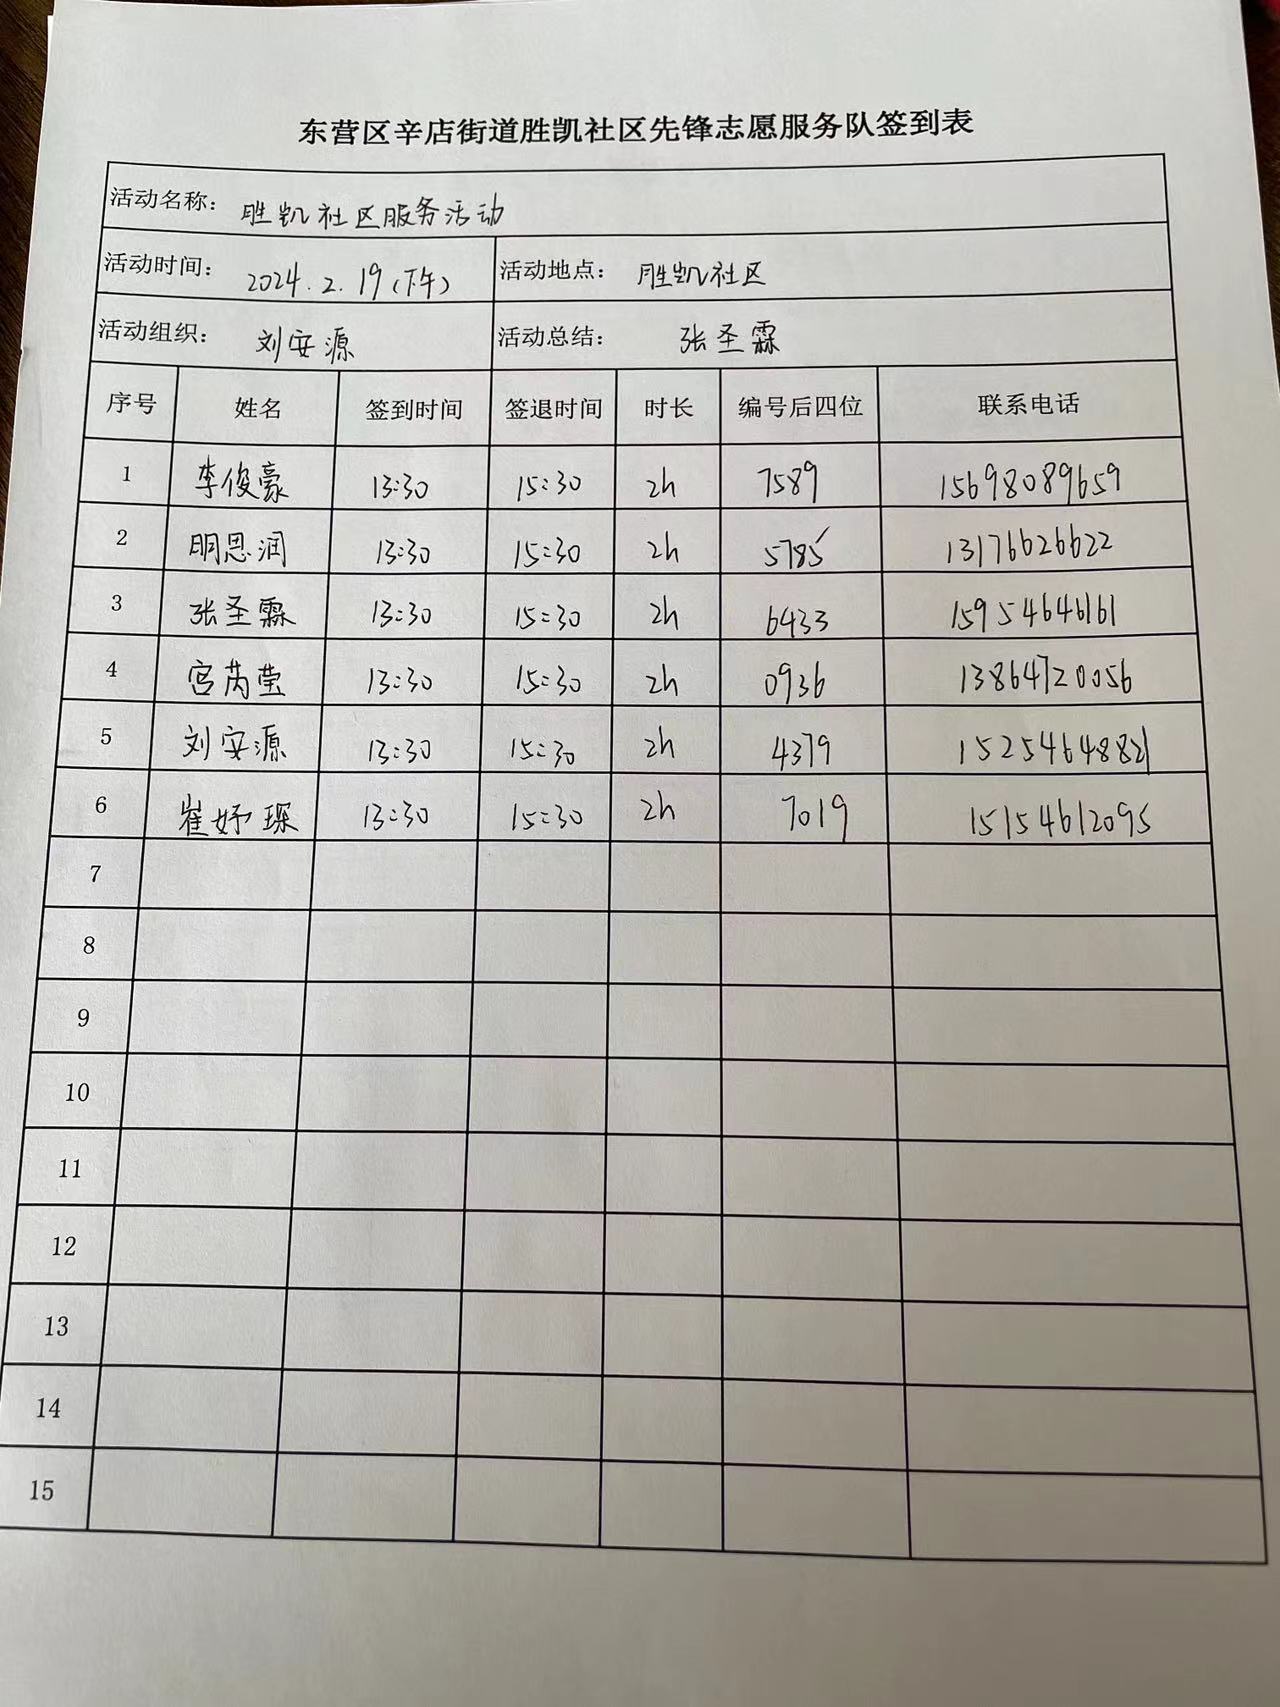 东营区辛店街道胜凯社区先锋志愿服务队签到表
活动名称： 胜凯社区服务活动
活动时间： 2024.2.19(下午) 活动地点： 胜凯社区
活动组织： 刘安源 活动总结： 张圣霖
序号 姓名 签到时间 签退时间 时长 编号后四位 联系电话
1 李俊豪 13:30 15:30 2h 7589 15698089659
2 明思润 13:30 15:30 2h 5785 13176626622
3 张圣霖 13:30 15:30 2h 6433 15954646161
4 宫芮莹 13:30 15:30 2h 0936 13864720056
5 刘安源 13:30 15:30 2h 4379 15254648821
6 崔妤琛 13:30 15:30 2h 7019 15154612095
7
8
9
10
11
12
13
14
15